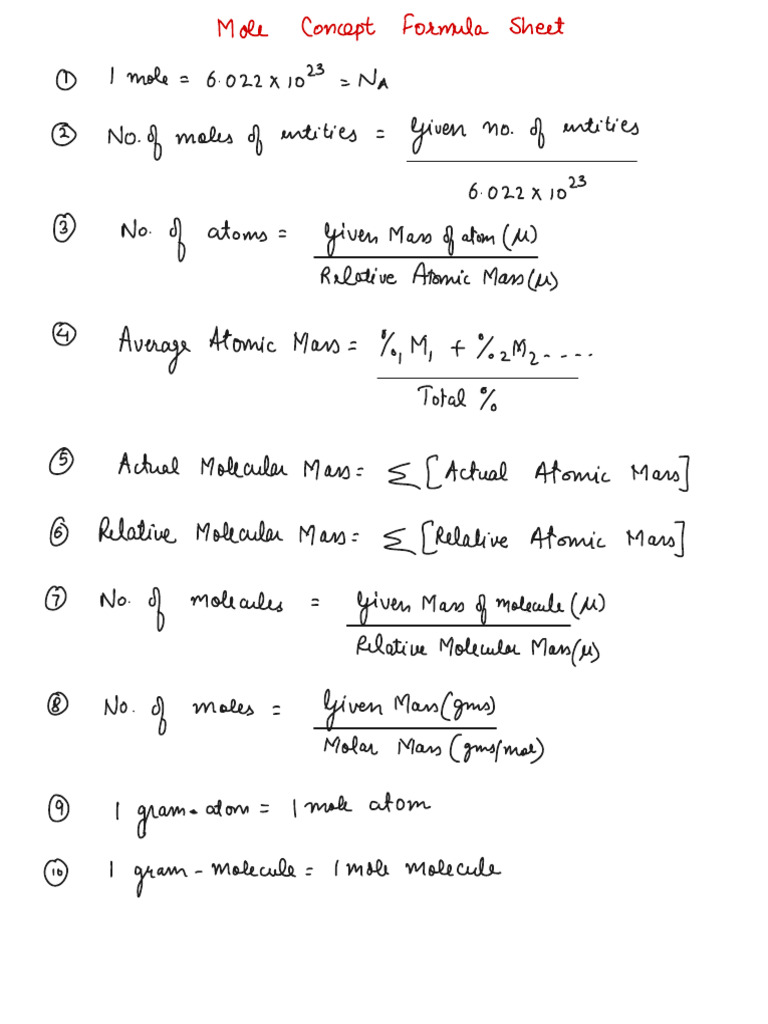 Mole Concept Formula Sheet
① 1 mole = 6.022 x 10²³ = Nᴀ
② No. of moles of entities = Given no. of entities
6.022 x 10²³
③ No. of atoms = Given Mass of atom (μ)
Relative Atomic Mass (μ)
④ Average Atomic Mass = %₁M₁ + %₂M₂ - - - -
Total %
⑤ Actual Molecular Mass = Σ [Actual Atomic Mass]
⑥ Relative Molecular Mass = Σ [Relative Atomic Mass]
⑦ No. of molecules = Given Mass of molecule (μ)
Relative Molecular Mass (μ)
⑧ No. of moles = Given Mass (gms)
Molar Mass (gms/mol)
⑨ 1 gram-atom = 1 mole atom
⑩ 1 gram-molecule = 1 mole molecule